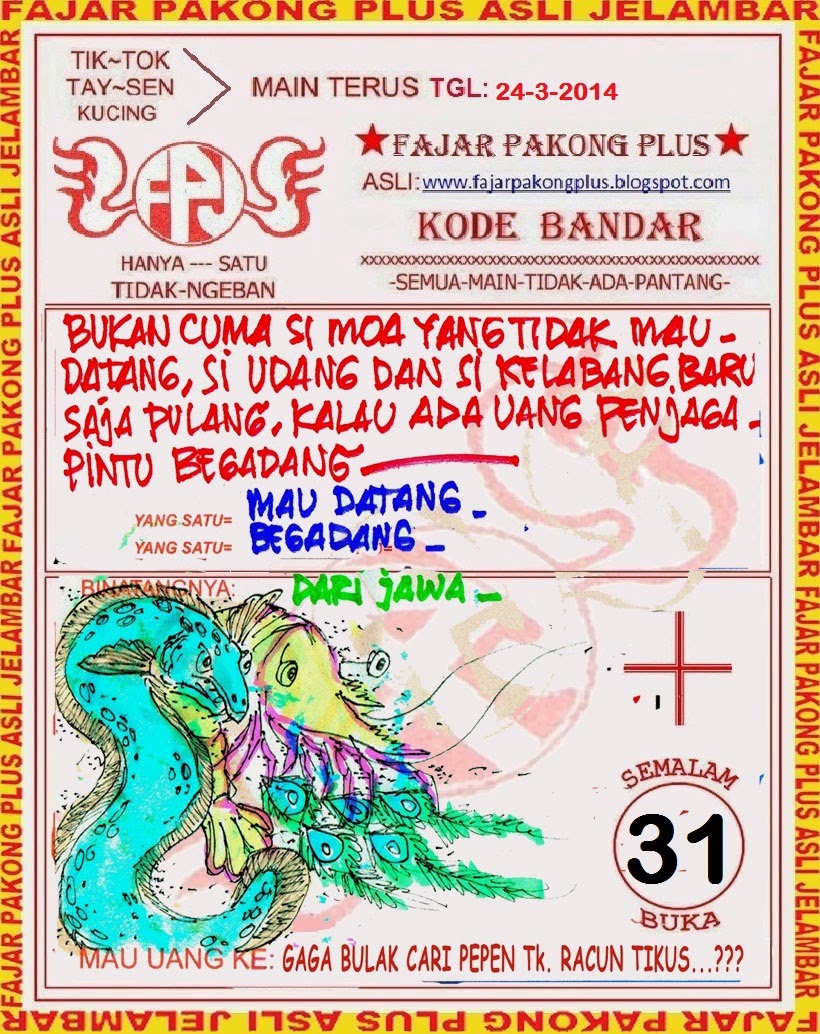 FAJAR PAKONG PLUS ASLI JELAMBAR
FAJAR PAKONG PLUS ASLI JELAMBAR FAJAR PAKONG PLUS ASLI JELAMBAR
FAJAR PAKONG PLUS ASLI JELAMBAR FAJAR PAKONG PLUS ASLI JELAMBAR
TIK~TOK
TAY~SEN
KUCING
MAIN TERUS TGL: 24-3-2014
FPJ
HANYA --- SATU
TIDAK-NGEBAN
★FAJAR PAKONG PLUS★
ASLI:www.fajarpakongplus.blogspot.com
KODE BANDAR
xxxxxxxxxxxxxxxxxxxxxxxxxxxxxxxxxxxxxxxxxxxxxxxxx
-SEMUA-MAIN-TIDAK-ADA-PANTANG-
BUKAN CUMA SI MOA YANG TIDAK MAU -
DATANG, SI UDANG DAN SI KELABANG BARU
SAJA PULANG, KALAU ADA UANG PENJAGA -
PINTU BEGADANG
YANG SATU= MAU DATANG -
YANG SATU= BEGADANG -
BINATANGNYA: DARI JAWA -
SEMALAM
31
BUKA
MAU UANG KE: GAGA BULAK CARI PEPEN Tk. RACUN TIKUS...???
FAJAR PAKONG PLUS ASLI JELAMBAR